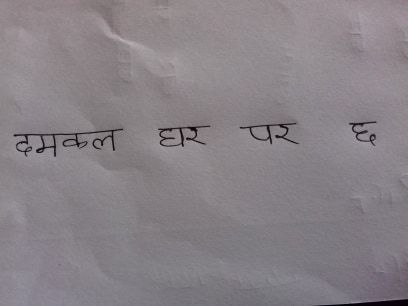 दमकल घर पर छ